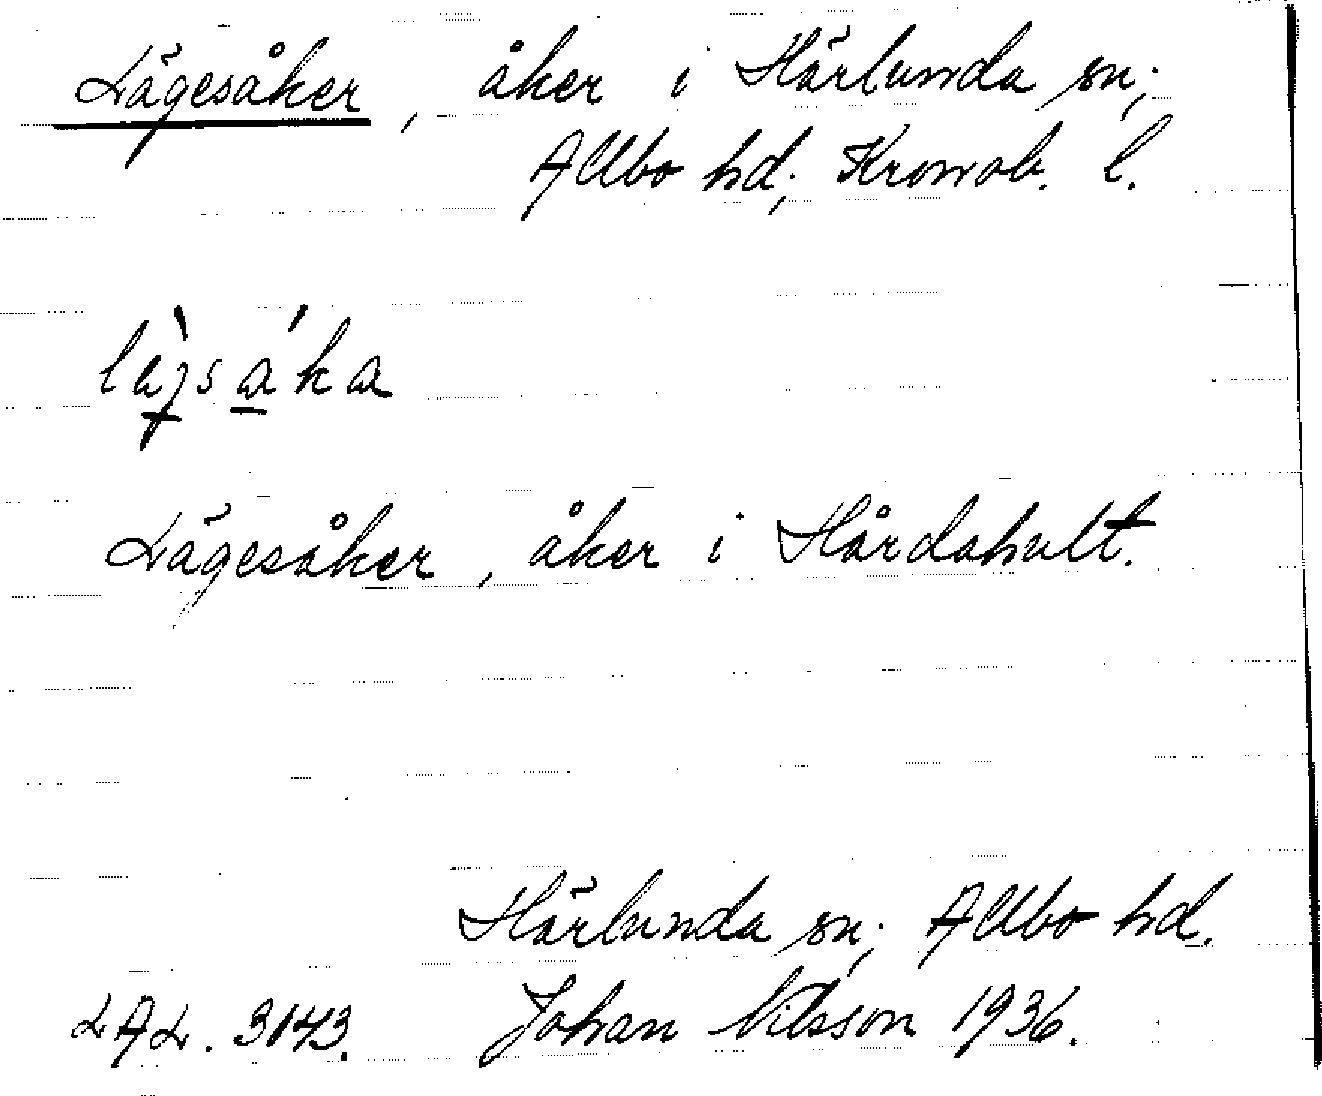 Lägesåker, åker i Härlunda sn;
Allbo hd; Kronob. l.
Lägesåker, åker i Hårdahult.
Härlunda sn; Allbo hd.
LAL. 3143. Johan Nilsson 1936.